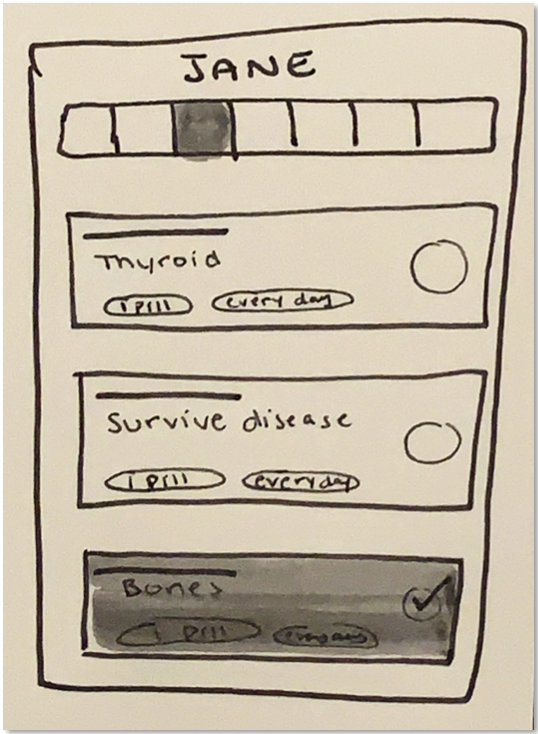 JANE
Thyroid
1 pill every day
Survive disease
1 pill everyday
Bones
1 pill everyday